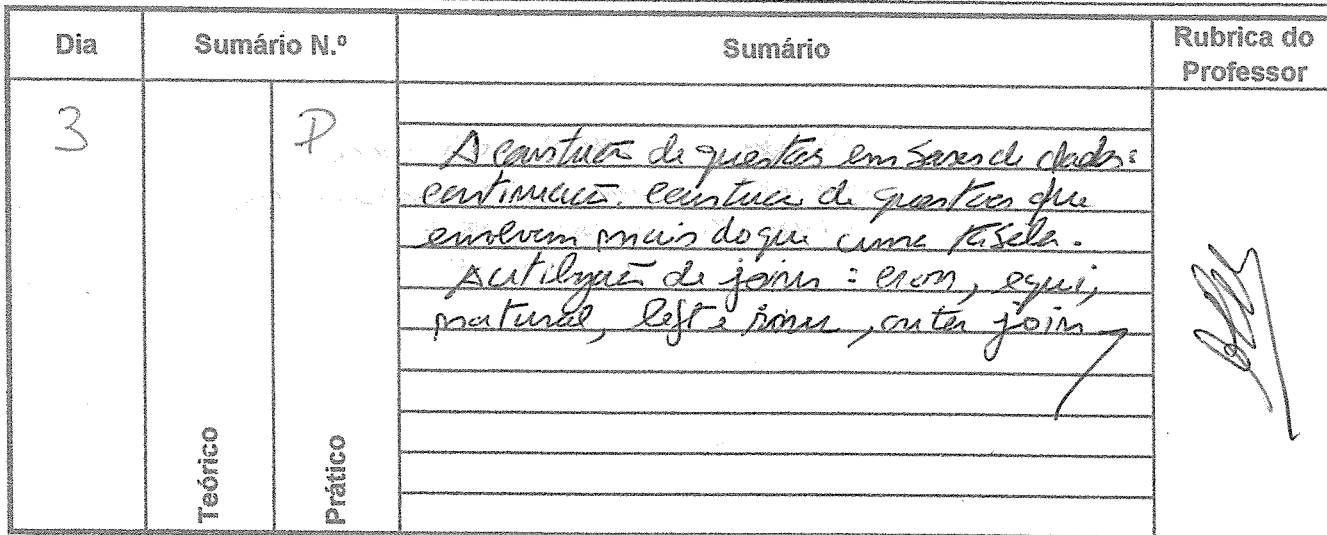 Dia
Sumário N.º
Sumário
Rubrica do
Professor
3
P
A construção de questões em bases de dados:
continuação. construção de questões que
envolvem mais do que uma tabela.
A utilização de joins: cross, equi,
natural, left e inner, outer join
Teórico
Prático